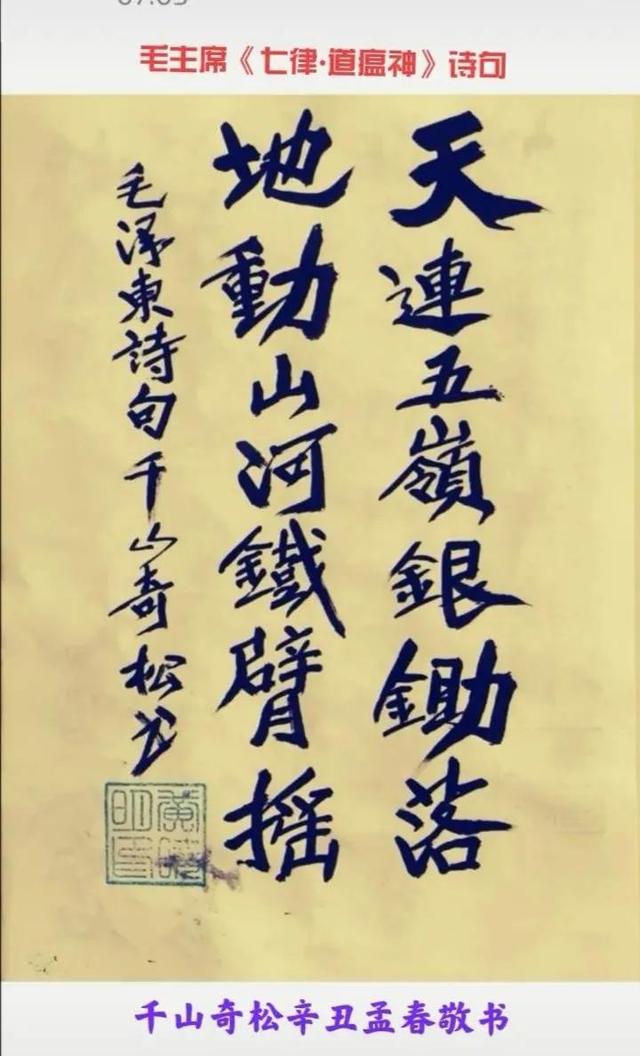 毛主席《七律·道瘟神》诗句
天連五嶺銀鋤落
地動山河鐵臂摇
毛澤東詩句千山奇松书
千山奇松辛丑孟春敬书